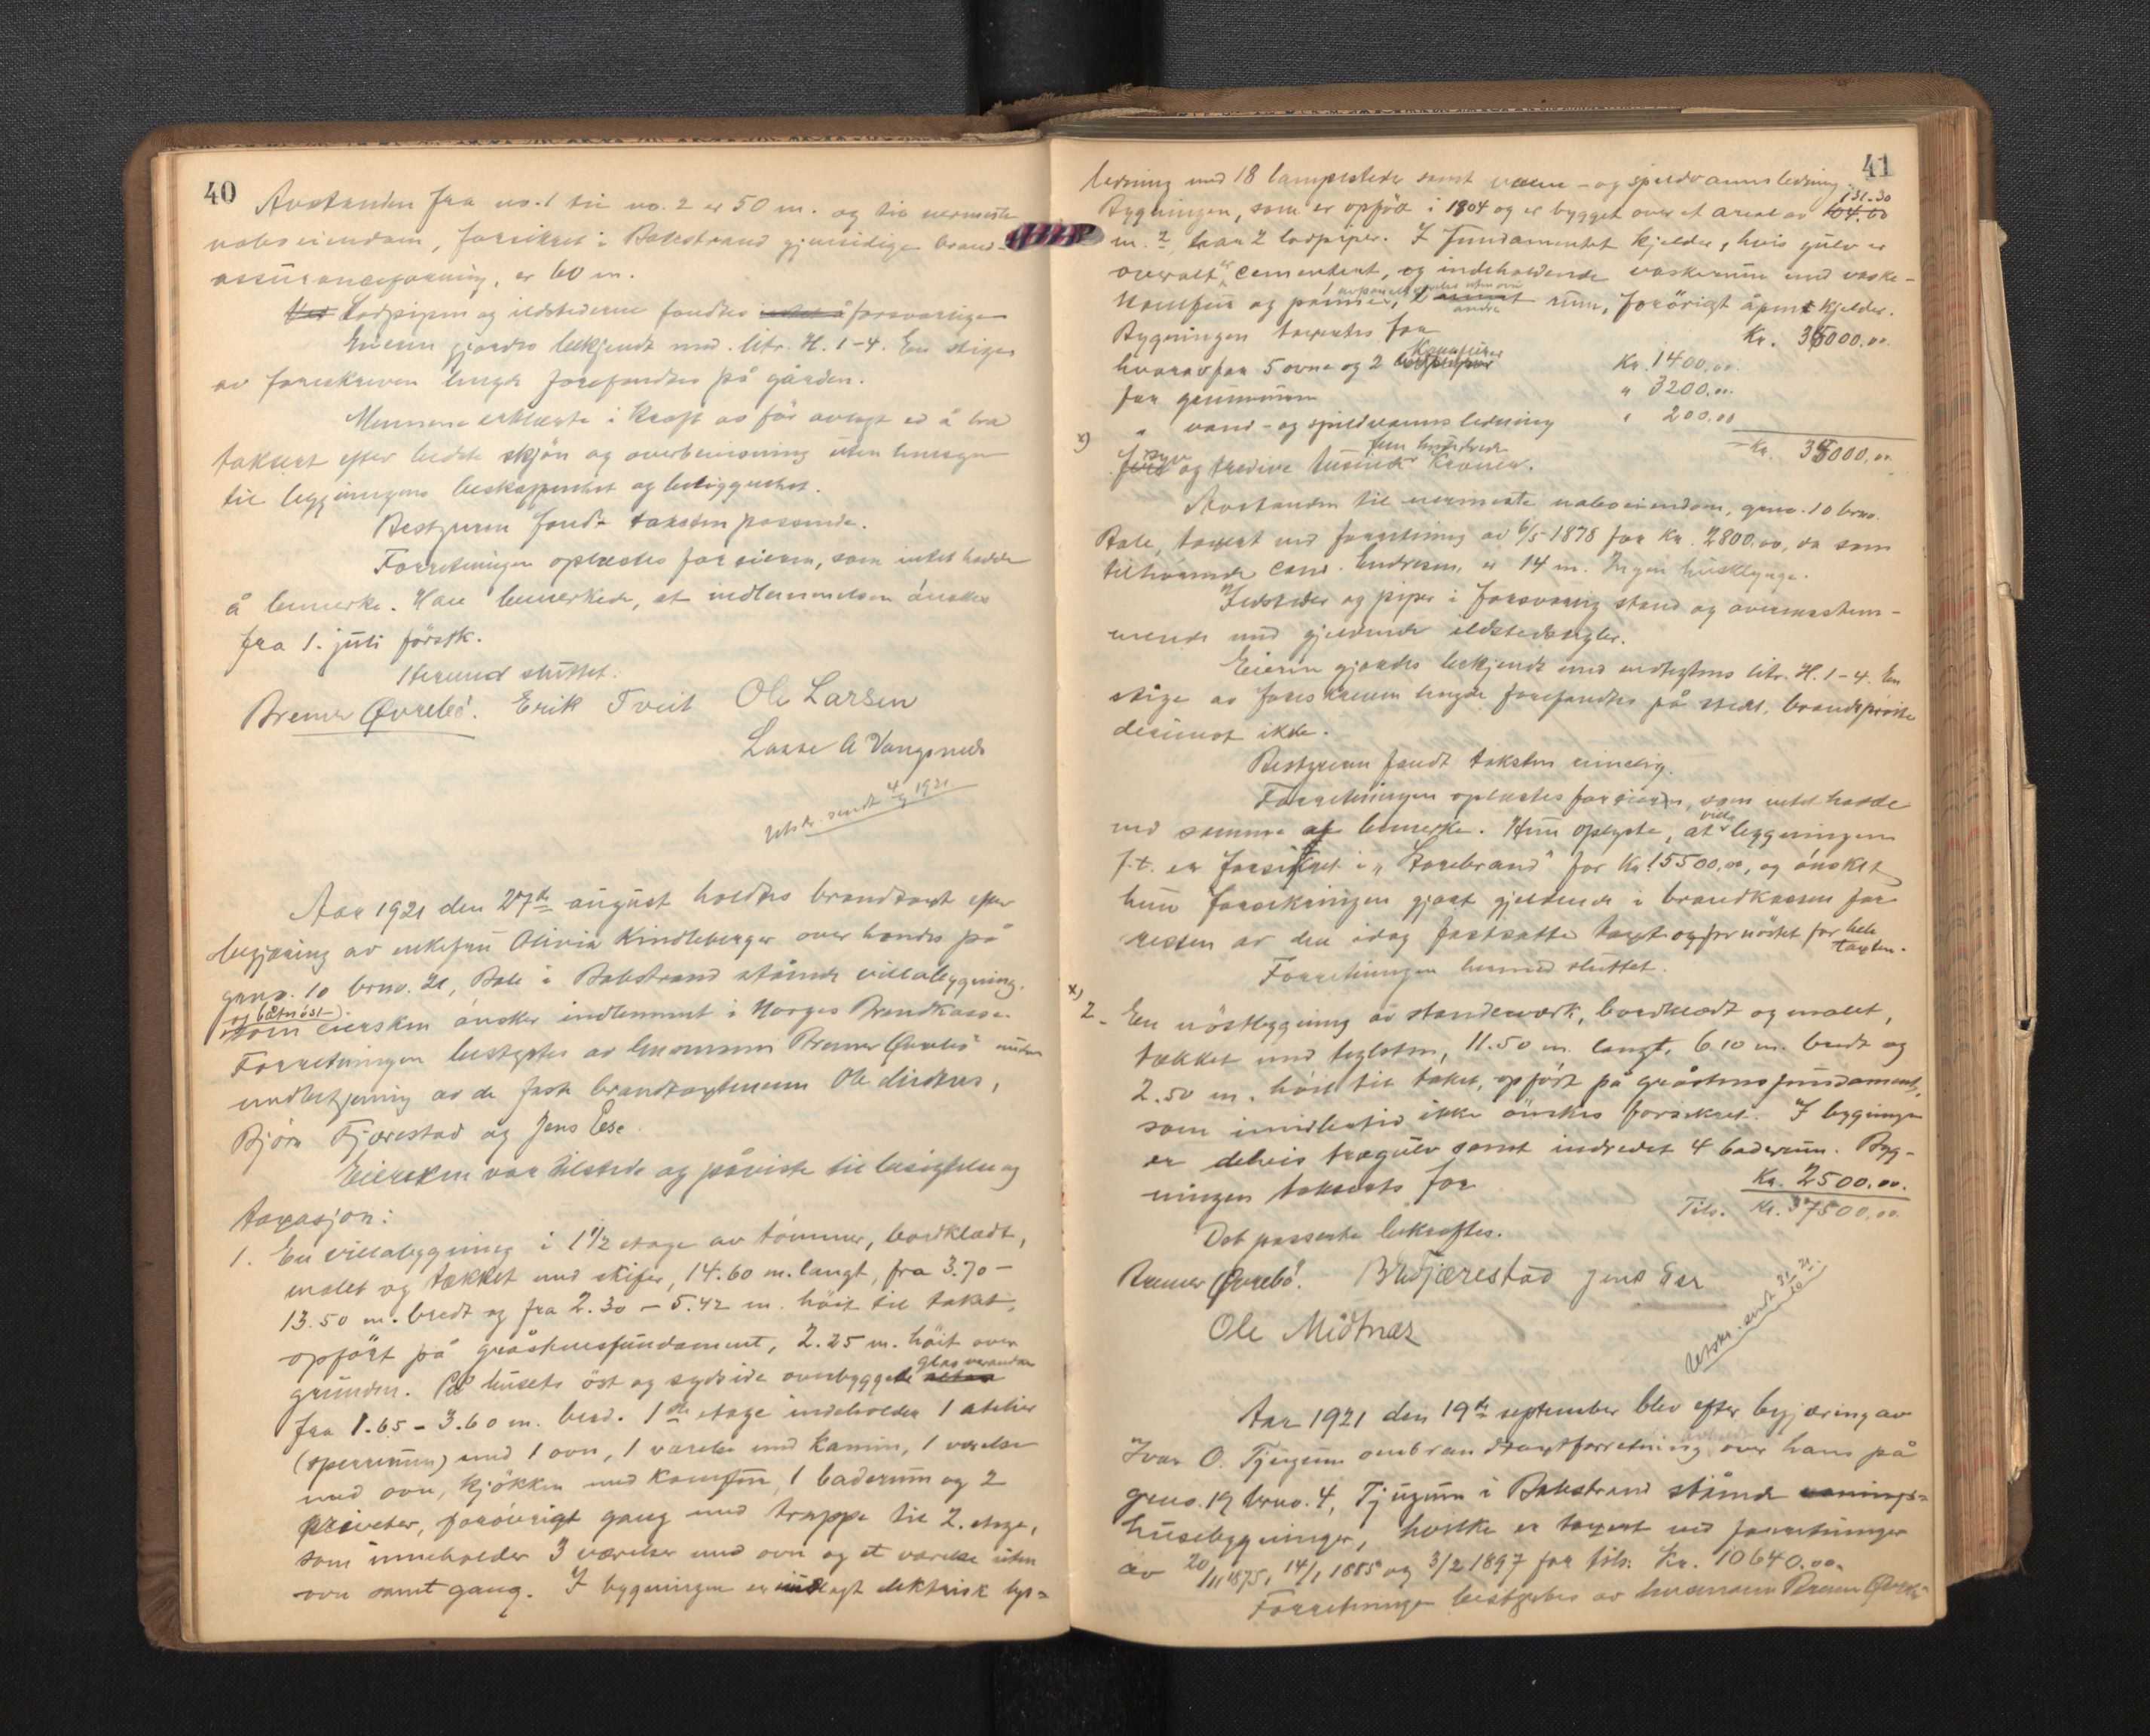 40
Avstanden fra no. 1 til no. 2 er 50 m. og til nærmeste
naboeiendom, forsikret i Balestrand gjensidige brand-
assuranceforening, er 60 m.
Ved Lodpipen og ildstederne fandtes intet å forsvarlige
Eieren gjordes bekjendt med litr. H. 1-4. En stige
av foreskreven lengde forefandtes på gården.
Mennene erklærte i kraft av før avlagt ed å ha
taksert efter bedste skjön og overbevisning uten hensyn
til bygningens beskaffenhet og beliggenhet.
Bestyreren fandt taksten passende.
Forretningen oplæstes for eieren, som intet hadde
å bemerke. Han bemerkede, at indlemmelsen önskes
fra 1. juli förstk.
Hermed sluttet.
Bremer Øvrebö. Erik Tveit Ole Larsen
Lasse A Vangsnes
Utskr. sendt 4/9 1921
Aar 1921 den 27de august holdtes brandtaxt efter
begjæring av enkefru Olivia Kindleberger over hendes på
gnno. 10 brno. 21, Bale i Balestrand stående villabygning.
og båtnöst
som eiersken önsker indlemmet i Norges Brandkasse.
Forretningen bestyrtes av lensmann Bremer Øvrebö under
medbetjening av de faste brandtaxtmenn Ole Midtnes,
Björn Fjærestad og Jens Ese.
Eiersken var tilstede og påviste til besigtelse og
taxasjon:
1. En villabygning i 1 1/2 etage av tömmer, bordklædt,
malet og tækket med skifer, 14.60 m. langt, fra 3.70 -
13.50 m. bredt og fra 2.30 - 5.42 m. höit til taket,
opfört på gråstensfundament, 2.25 m. höit over
grunden. På husets öst og sydside overbyggede altan glasveranda
fra 1.65 - 3.60 m. bred. 1ste etage indeholder 1 atelier
(spiserum) med 1 ovn, 1 værelse med kamin, 1 værelse
med ovn, kjökken med komfur, 1 baderum og 2
priveter, forövrigt gang med trappe til 2. etage,
som inneholder 3 værelser med ovn og et værelse uten
ovn samt gang. I bygningen er indlagt elektrisk lys-
41
ledning med 18 lampesteder samt vann- og spildvannsledning.
Bygningen, som er opfört i 1904 og er bygget over et areal av 104.00 131.30
m.2, har 2 lodpiper. I fundamentet kjelder, hvis gulv er
overalt cementert, og indeholdende vaskerum med vaske-
komfur og panner, 1 annet andre rum, forövrigt åpent kjelder.
Bygningen taxertes for Kr. 35000.00
hvorav for 5 ovne og 2 komfurer Kr. 1400.00.
for grunnmuren " 3200.00.
" vand- og spildvanns ledning " 200.00
Kr. 35000.00
x) fem syv og tredive tusinde fem hundrede kroner.
Avstanden til nærmeste naboeiendom, gnno. 10 brno.
Bale, taxert ved forretning av 6/5 1878 for Kr. 2800.00, og som
tilhörende Cand. Endresen, er 14 m. Ingen husklynge.
Ildsteder og piper i forsvarlig stand og overensstem-
mende med gjeldende ildstedsregler.
Eieren gjordes bekjendt med vedtægtens litr. H. 1-4. En
stige av foreskreven lengde forefandtes på stedet, brandspröite
derimot ikke.
Bestyreren fandt taksten rimelig.
Forretningen oplæstes for eieren, som intet hadde
ved samme at bemerke. Hun oplyste, at villa bygningen
f.t. er forsikret i "Storebrand" for Kr. 15500.00, og önsket
hun forsikringen gjort gjeldende i brandkassen for
resten av den idag fastsatte taxt og for nöstet for hele taxten.
Forretningen hermed sluttet.
x) 2. En nöstbygning av stenderværk, bordklædt og malet,
tækket med teglsten, 11.50 m. langt, 6.10 m. bredt og
2.50 m. höit til taket, opfört på gråstensfundament,
som imidlertid ikke önskes forsikret. I bygningen
er delvis trægulv samt indredet 4 baderum. Byg-
ningen takseres for Kr. 2500.00.
Tils. Kr. 37500.00
Det passerte bekræftes.
Bremer Øvrebö. B. Fjærestad Jens Ese
Ole Midtnæs
Utskr. sendt 31/10 21.
Aar 1921 den 19de september blev efter begjæring av
Ivar O. Tjugum ombrandtaxtforretning over hans på
gnno. 19 brno. 4, Tjugum i Balestrand stående vånings-
husebygninger, hvilke er taxert ved forretninger
av 20/11 1875, 14/1 1885 og 3/2 1897 for tils. Kr. 10640.00.
Forretningen bestyrtes av lensmann Bremer Øvrebö